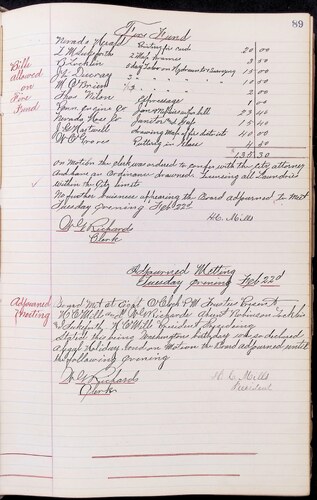 89
Fire Fund
Bills
allowed
on
Fire
Fund
Nevada Herald Printing fire code 20 00
2 Map frames 3 00
B Locklin 5 days Labor on Hydrants & Surveying 15 00
M. O'Brien
Thos Nilon Expressage 1 00
Penn Engine Co Jan
Nevada Hose Co Janitor & Gas 15 40
J. G. Hartwell Drawing Map of fire districts 40 00
W. C. Groves Puttery in Glass
138.30
On motion the clerk was ordered to confer with the city attorney
and have an Ordinance drawned licensing all Laundries
within the City limits
No further business appearing the Board adjourned to meet
Tuesday evening Feb 22d
H.C. Mills
W G Richards
Clerk
Adjourned Meeting
Tuesday Evening Feb 22d
Adjourned
Meeting
Board Met at Eight O'Clock P.M. Trustees Present
H C Mills and W G Richards Absent Robinson Locklin
& Lutz H C Mills President Presiding
Stated this being Washingtons birthday who declared
a Legal Holiday and on Motion the Board adjourned until
the following evening
W G Richards
Clerk
H. C. Mills
President